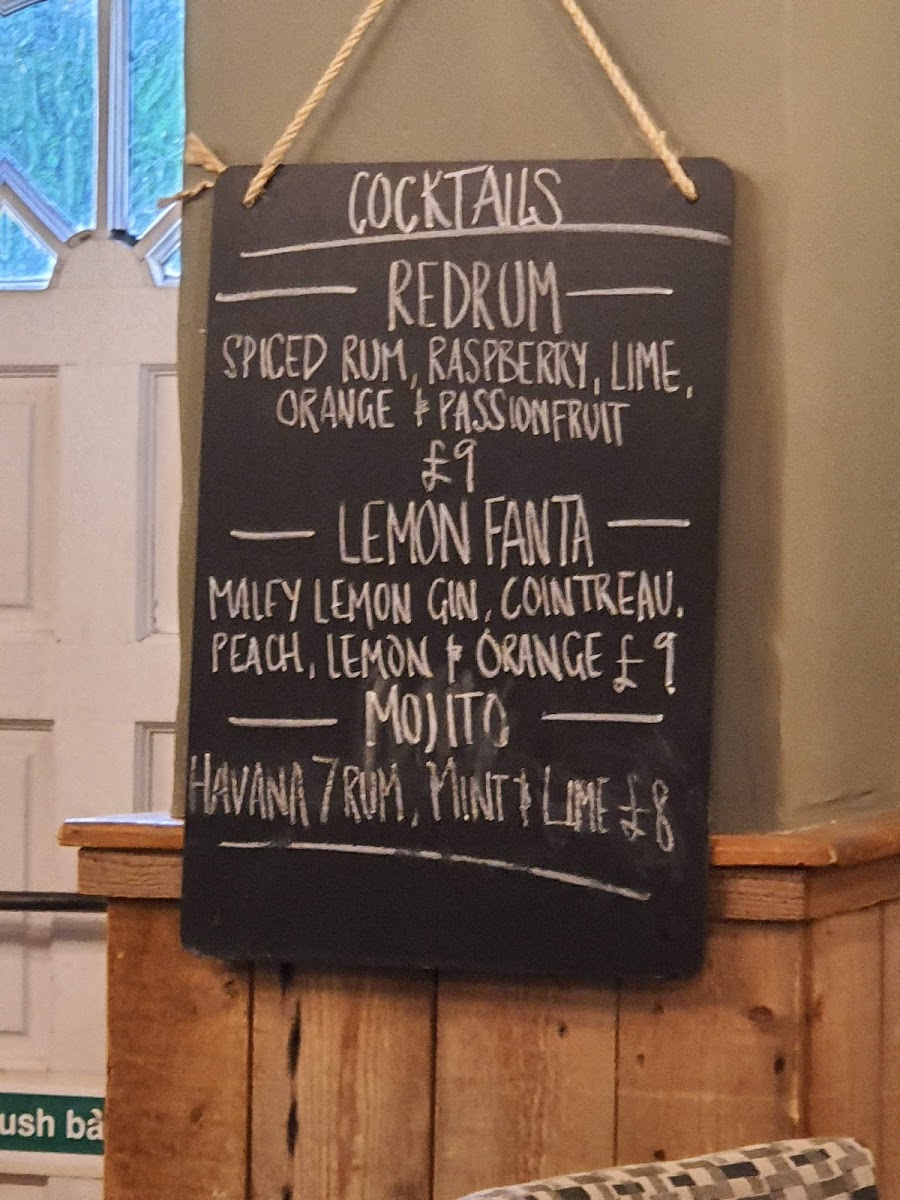 COCKTAILS
REDRUM
SPICED RUM, RASPBERRY, LIME,
ORANGE & PASSIONFRUIT
£9
LEMON FANTA
MALFY LEMON GIN, COINTREAU,
PEACH, LEMON & ORANGE £9
MOJITO
HAVANA 7 RUM, MINT & LIME £8
ush ba